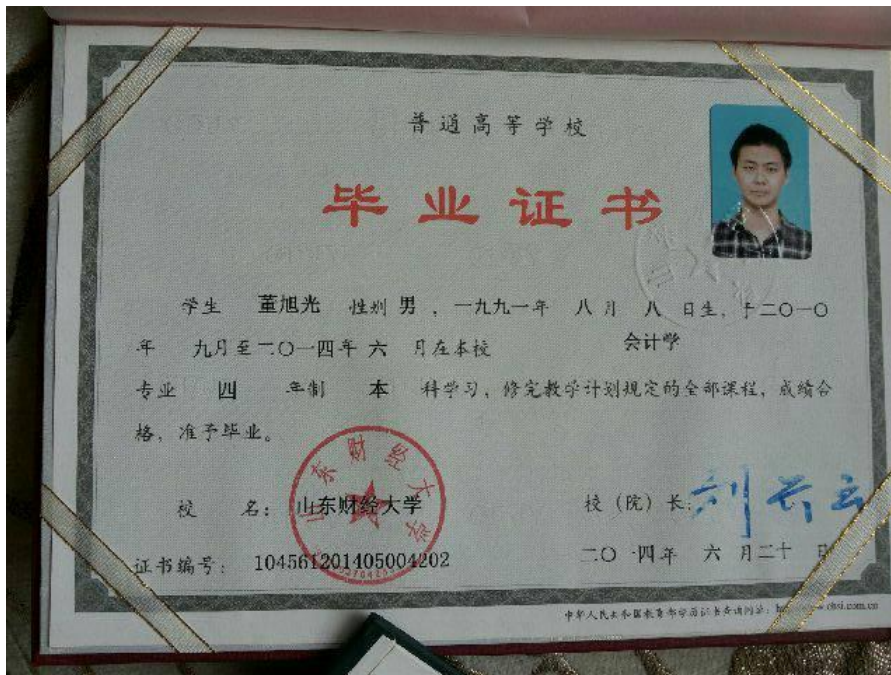 普通高等学校
毕业证书
学生 董旭光 性别 男 ，一九九一年 八 月 八 日生，于二〇一〇
年 九月至二〇一四年 六 月在本校 会计学
专业 四 年制 本 科学习，修完教学计划规定的全部课程，成绩合
格，准予毕业。
山东财经大学
校 名： 山东财经大学 校（院）长：
证书编号： 104561201405004202 二〇一四年 六 月二十 日
中华人民共和国教育部学历证书查询网址：